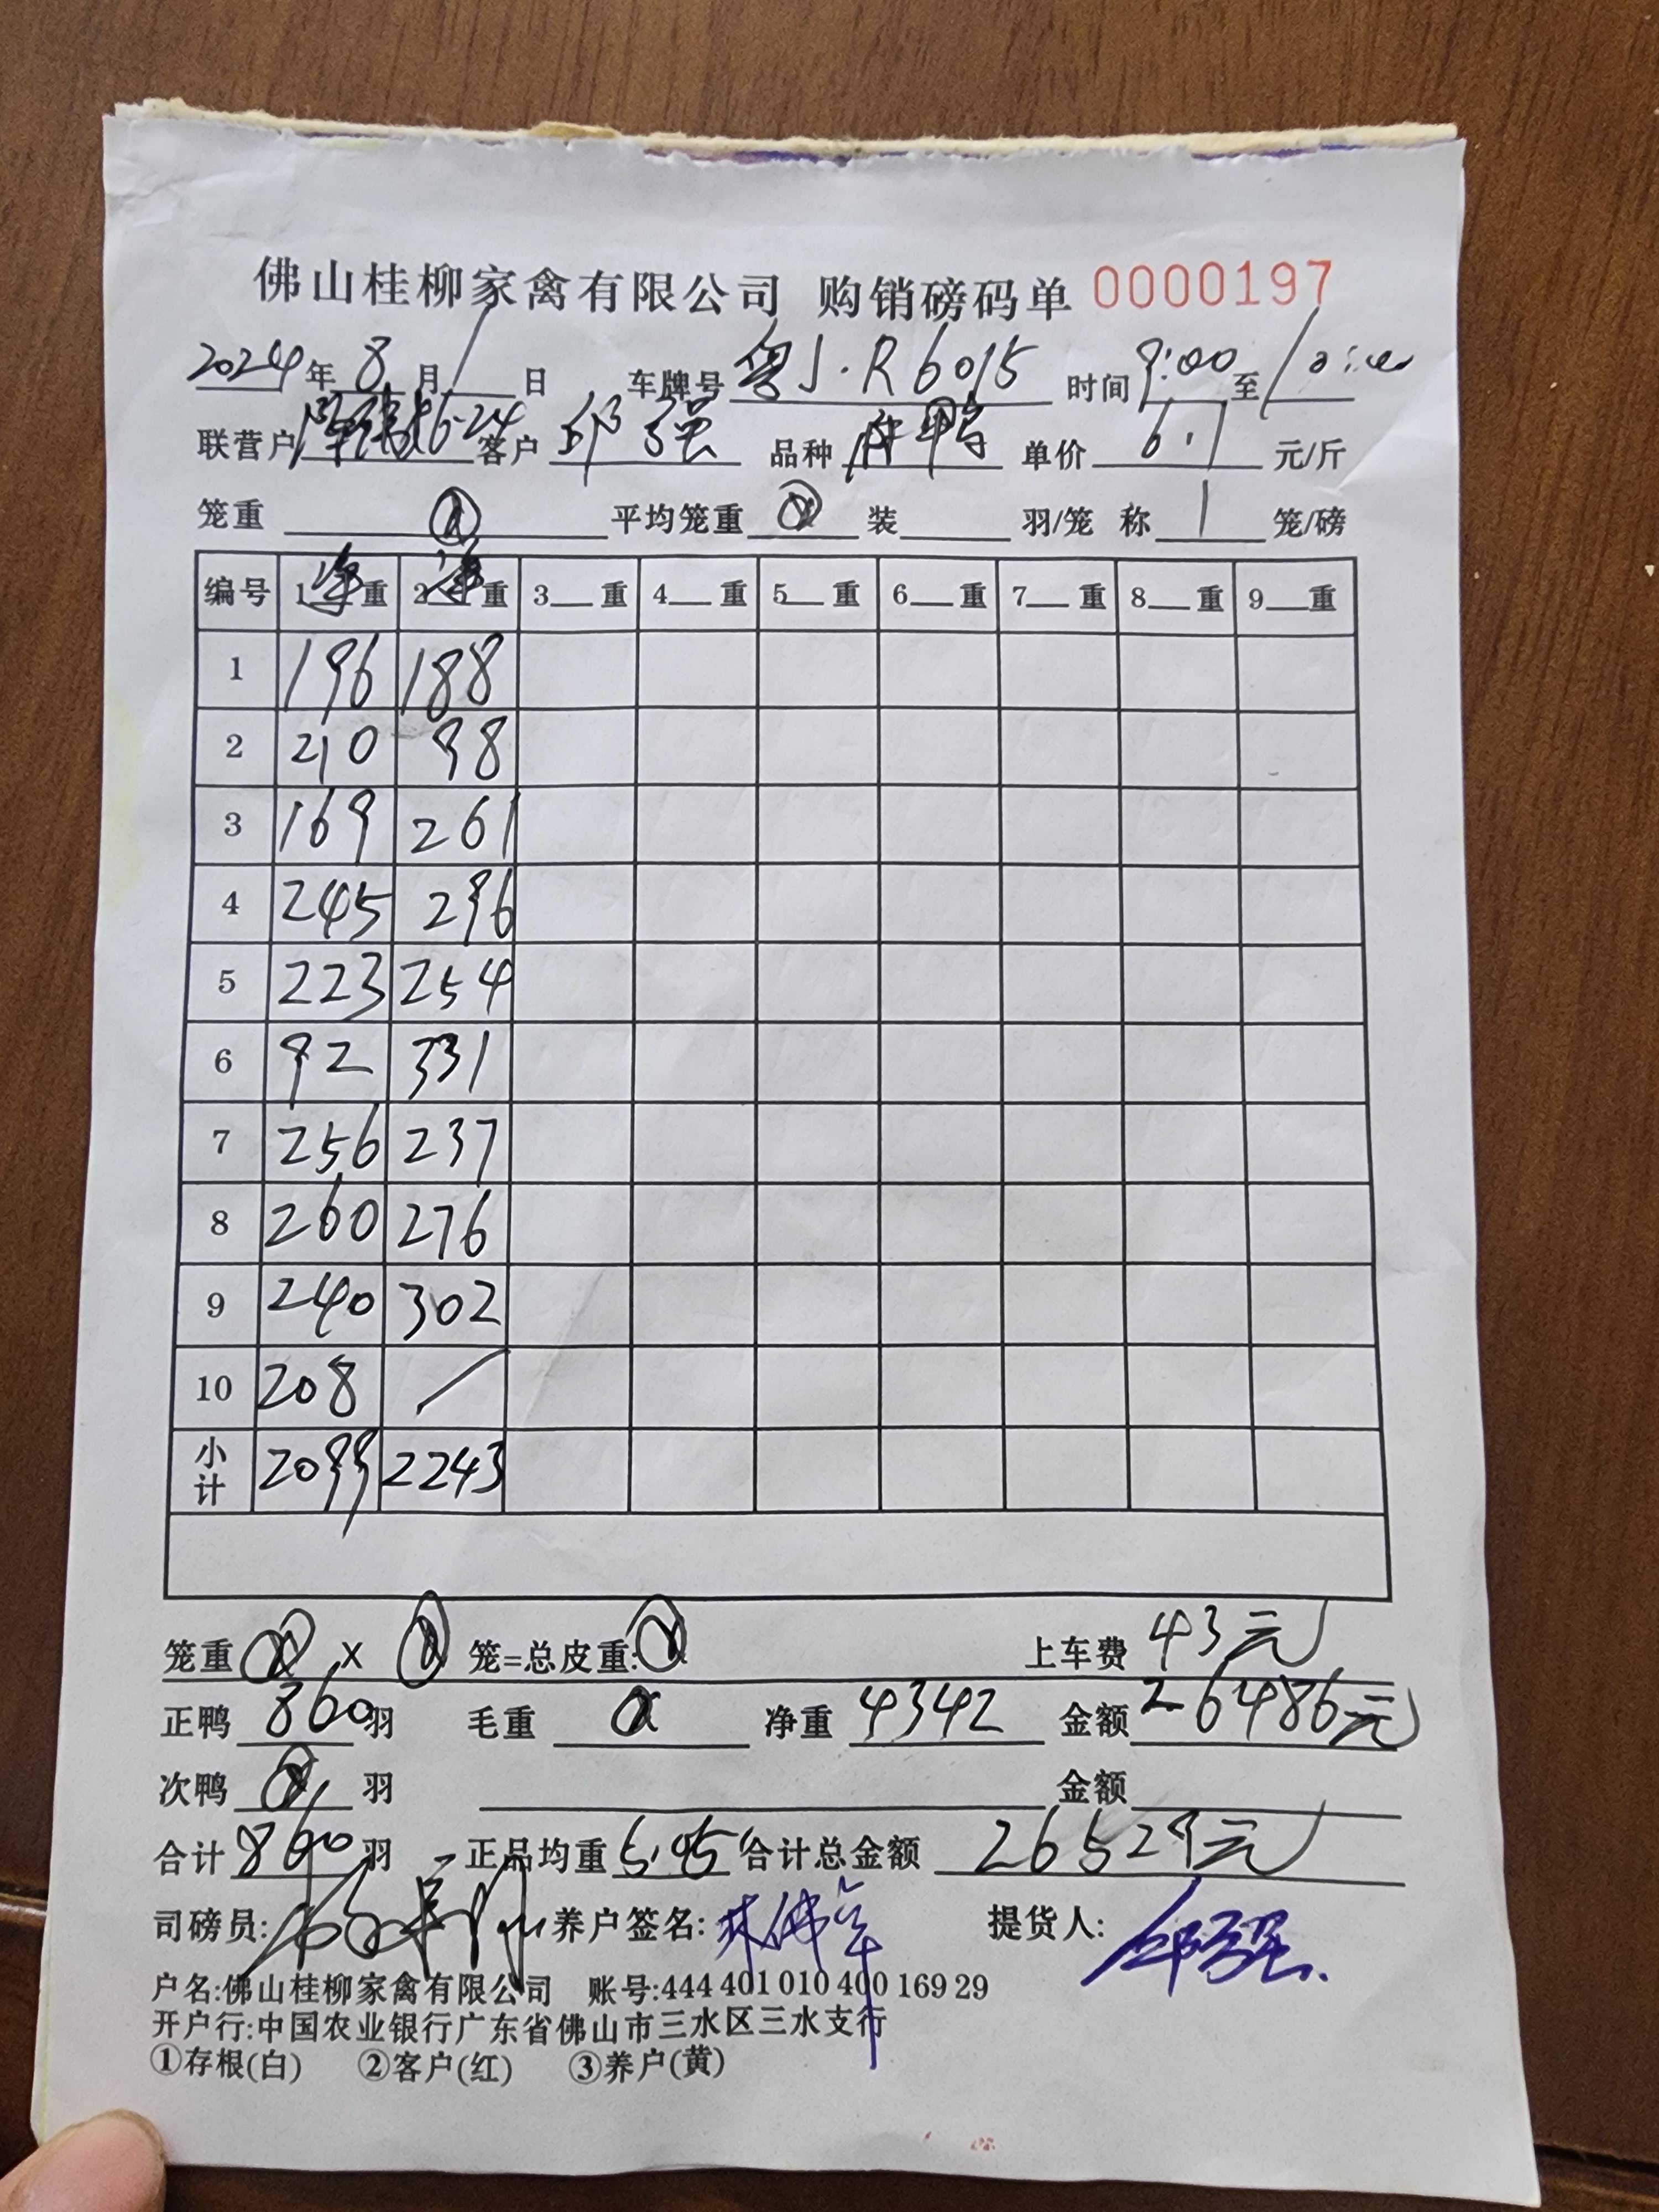 佛山桂柳家禽有限公司 购销磅码单 0000197
2024年 8 月 1 日 车牌号 粤J·R6015 时间 9:00 至
联营户 16-24 客户 邱强 品种 单价 6.1 元/斤
笼重 平均笼重 装 羽/笼 称 1 笼/磅
编号 1净重 2净重 3 重 4 重 5 重 6 重 7 重 8 重 9 重
1 196 188
2 210 98
3 169 261
4 245 296
5 223 254
6 92 331
7 256 237
8 260 276
9 240 302
10 208 /
小计 2099 2243
笼重 × 笼=总皮重: 上车费 43元
正鸭 860羽 毛重 净重 4342 金额 26486元
次鸭 羽 金额
合计 860羽 正品均重 5.05 合计总金额 26529元
司磅员: 养户签名: 提货人: 邱强
户名:佛山桂柳家禽有限公司 账号:444 401 010 400 169 29
开户行:中国农业银行广东省佛山市三水区三水支行
①存根(白) ②客户(红) ③养户(黄)